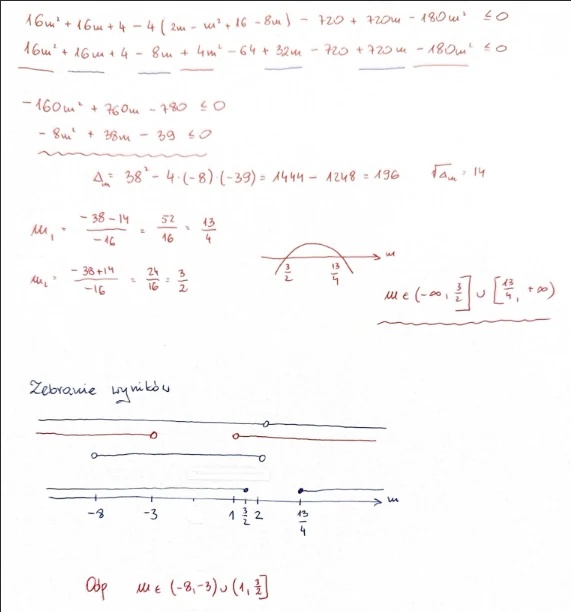 16m² + 16m + 4 - 4(2m - m² + 16 - 8m) - 720 + 720m - 180m² ≤ 0
16m² + 16m + 4 - 8m + 4m² - 64 + 32m - 720 + 720m - 180m² ≤ 0
-160m² + 760m - 780 ≤ 0
-8m² + 38m - 39 ≤ 0
Δm = 38² - 4·(-8)·(-39) = 1444 - 1248 = 196 √Δm = 14
m₁ = (-38-14)/(-16) = 52/16 = 13/4
m₂ = (-38+14)/(-16) = 24/16 = 3/2
3/2 13/4 m
m ∈ (-∞, 3/2] ∪ [13/4, +∞)
Zebranie wyników
-8 -3 1 3/2 2 13/4 m
Odp m ∈ (-8,-3) ∪ (1, 3/2]